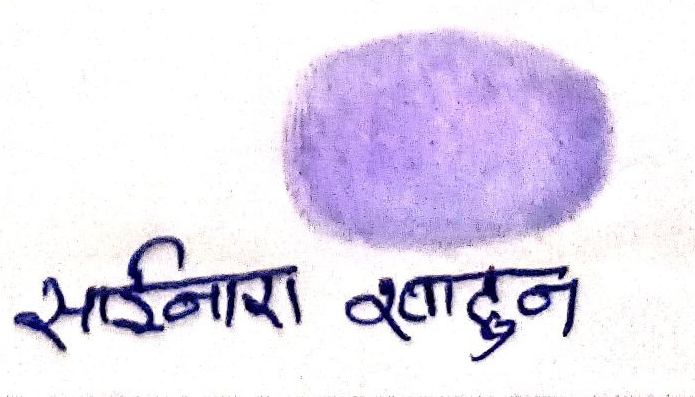 साईनारा खातुन